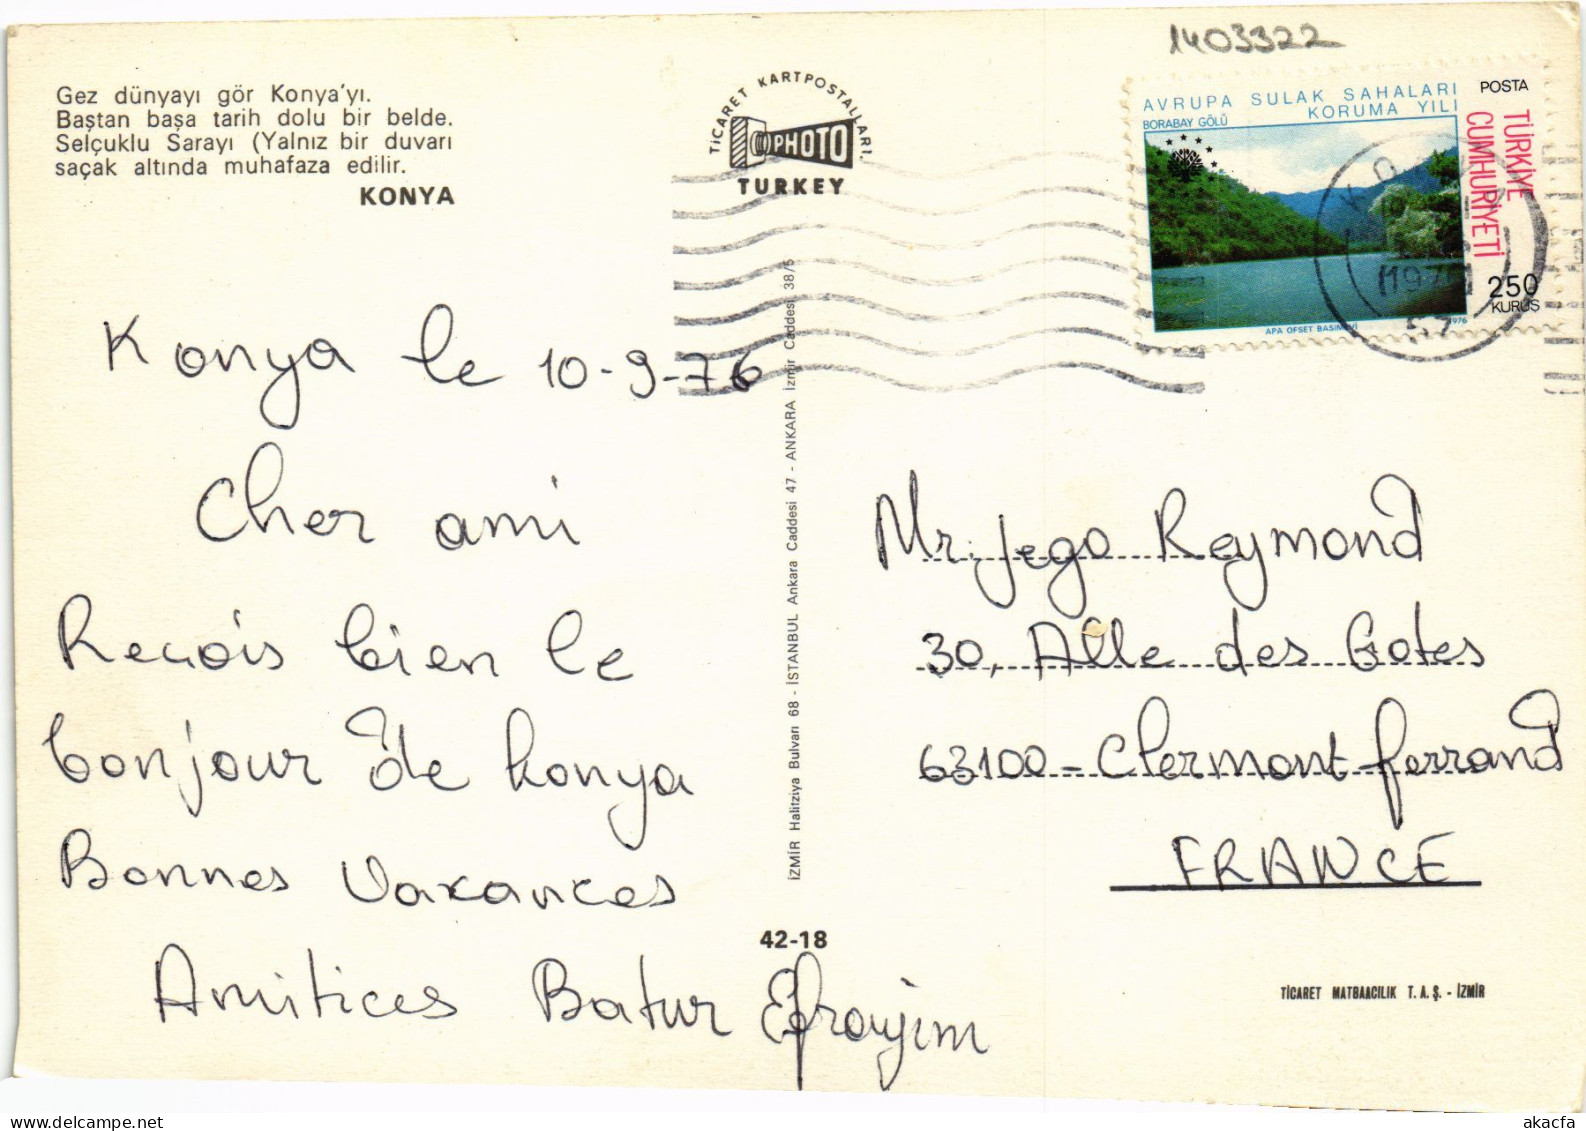 1403322
Gez dünyayı gör Konya'yı.
Baştan başa tarih dolu bir belde.
Selçuklu Sarayı (Yalnız bir duvarı
saçak altında muhafaza edilir.
KONYA
TİCARET KARTPOSTALLARI.
PHOTO
TURKEY
AVRUPA SULAK SAHALARI
KORUMA YILI
BORABAY GÖLÜ
POSTA
TÜRKİYE
CUMHURİYETİ
250
KURUŞ
APA OFSET BASIMEVİ
1976
Konya le 10-9-76
Cher ami
Reçois bien le
bonjour de konya
Bonnes Vacances
Amitices Batur Efrayim
İZMİR Halitziya Bulvarı 68 - İSTANBUL Ankara Caddesi 47 - ANKARA İzmir Caddesi 38/5
42-18
Mr. Jego Reymond
30, Alle des Gotes
63100 - Clermont ferrand
FRANCE
TİCARET MATBAACILIK T. A. Ş. - İZMİR
akacfa